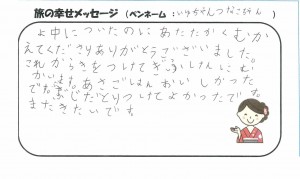 旅の幸せメッセージ (ペンネーム:いりちゃんつなこちゃん)
よ中についたのに あたたかくむか
えてくださりありがとうございました。
これからきをつけて
かいます。あさごはんおいしかった
です。
よかったです。
またきたいです